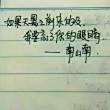 如果天黑之前来得及，
我要忘了你的眼睛
——南山南